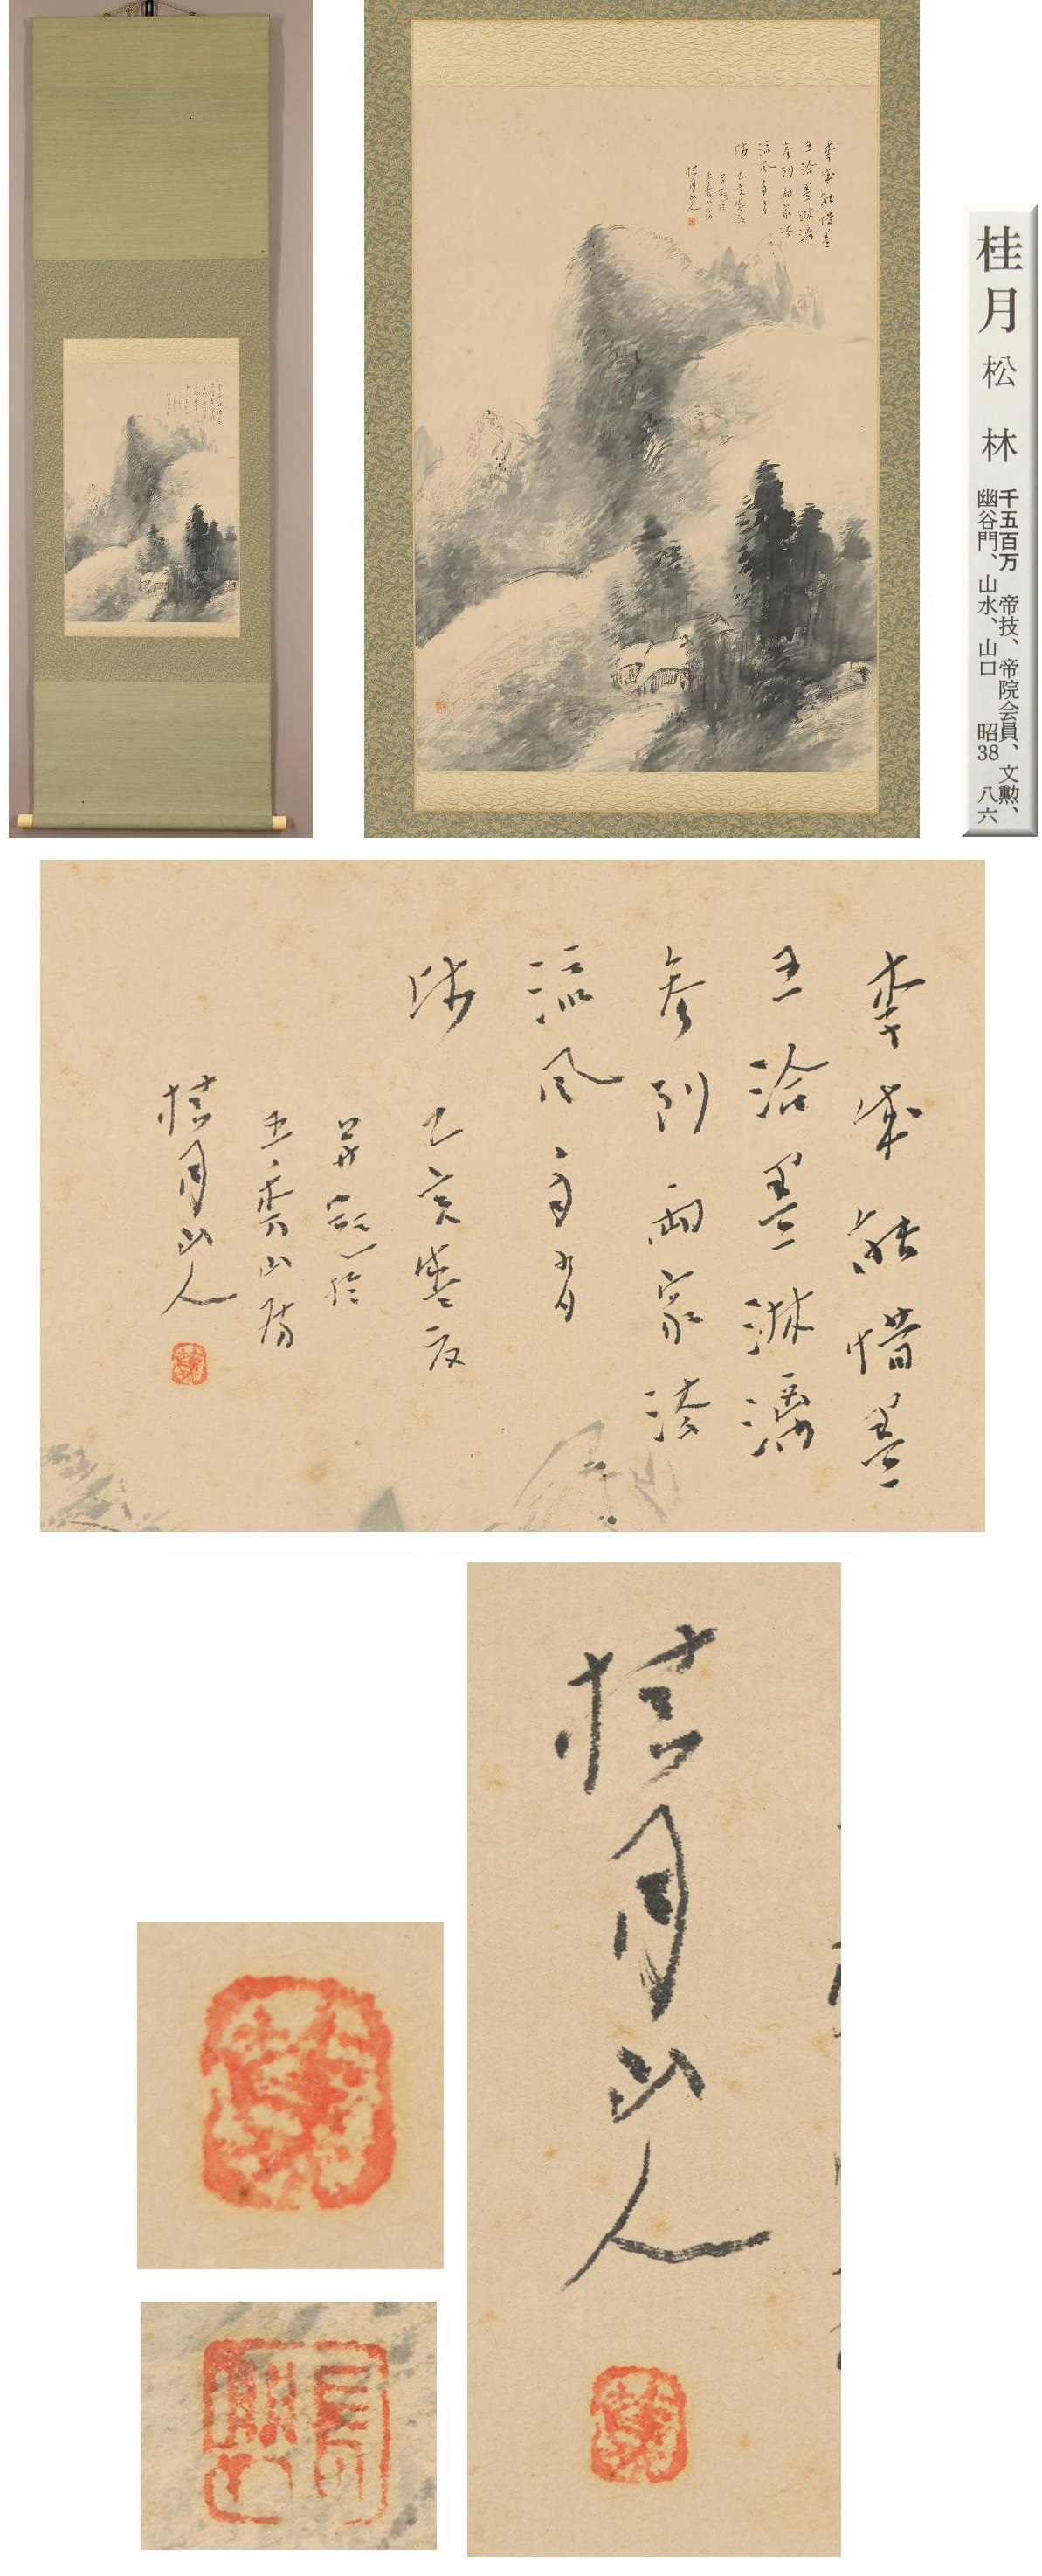 桂月 松林
千五百万 帝技、帝院会員、文勲、
幽谷門、山水、山口 昭38 八六
李成能惜墨
王洽墨淋漓
参到両家法
流風自有
師 乙亥盛夏
并題於
山房
桂月山人
桂月山人